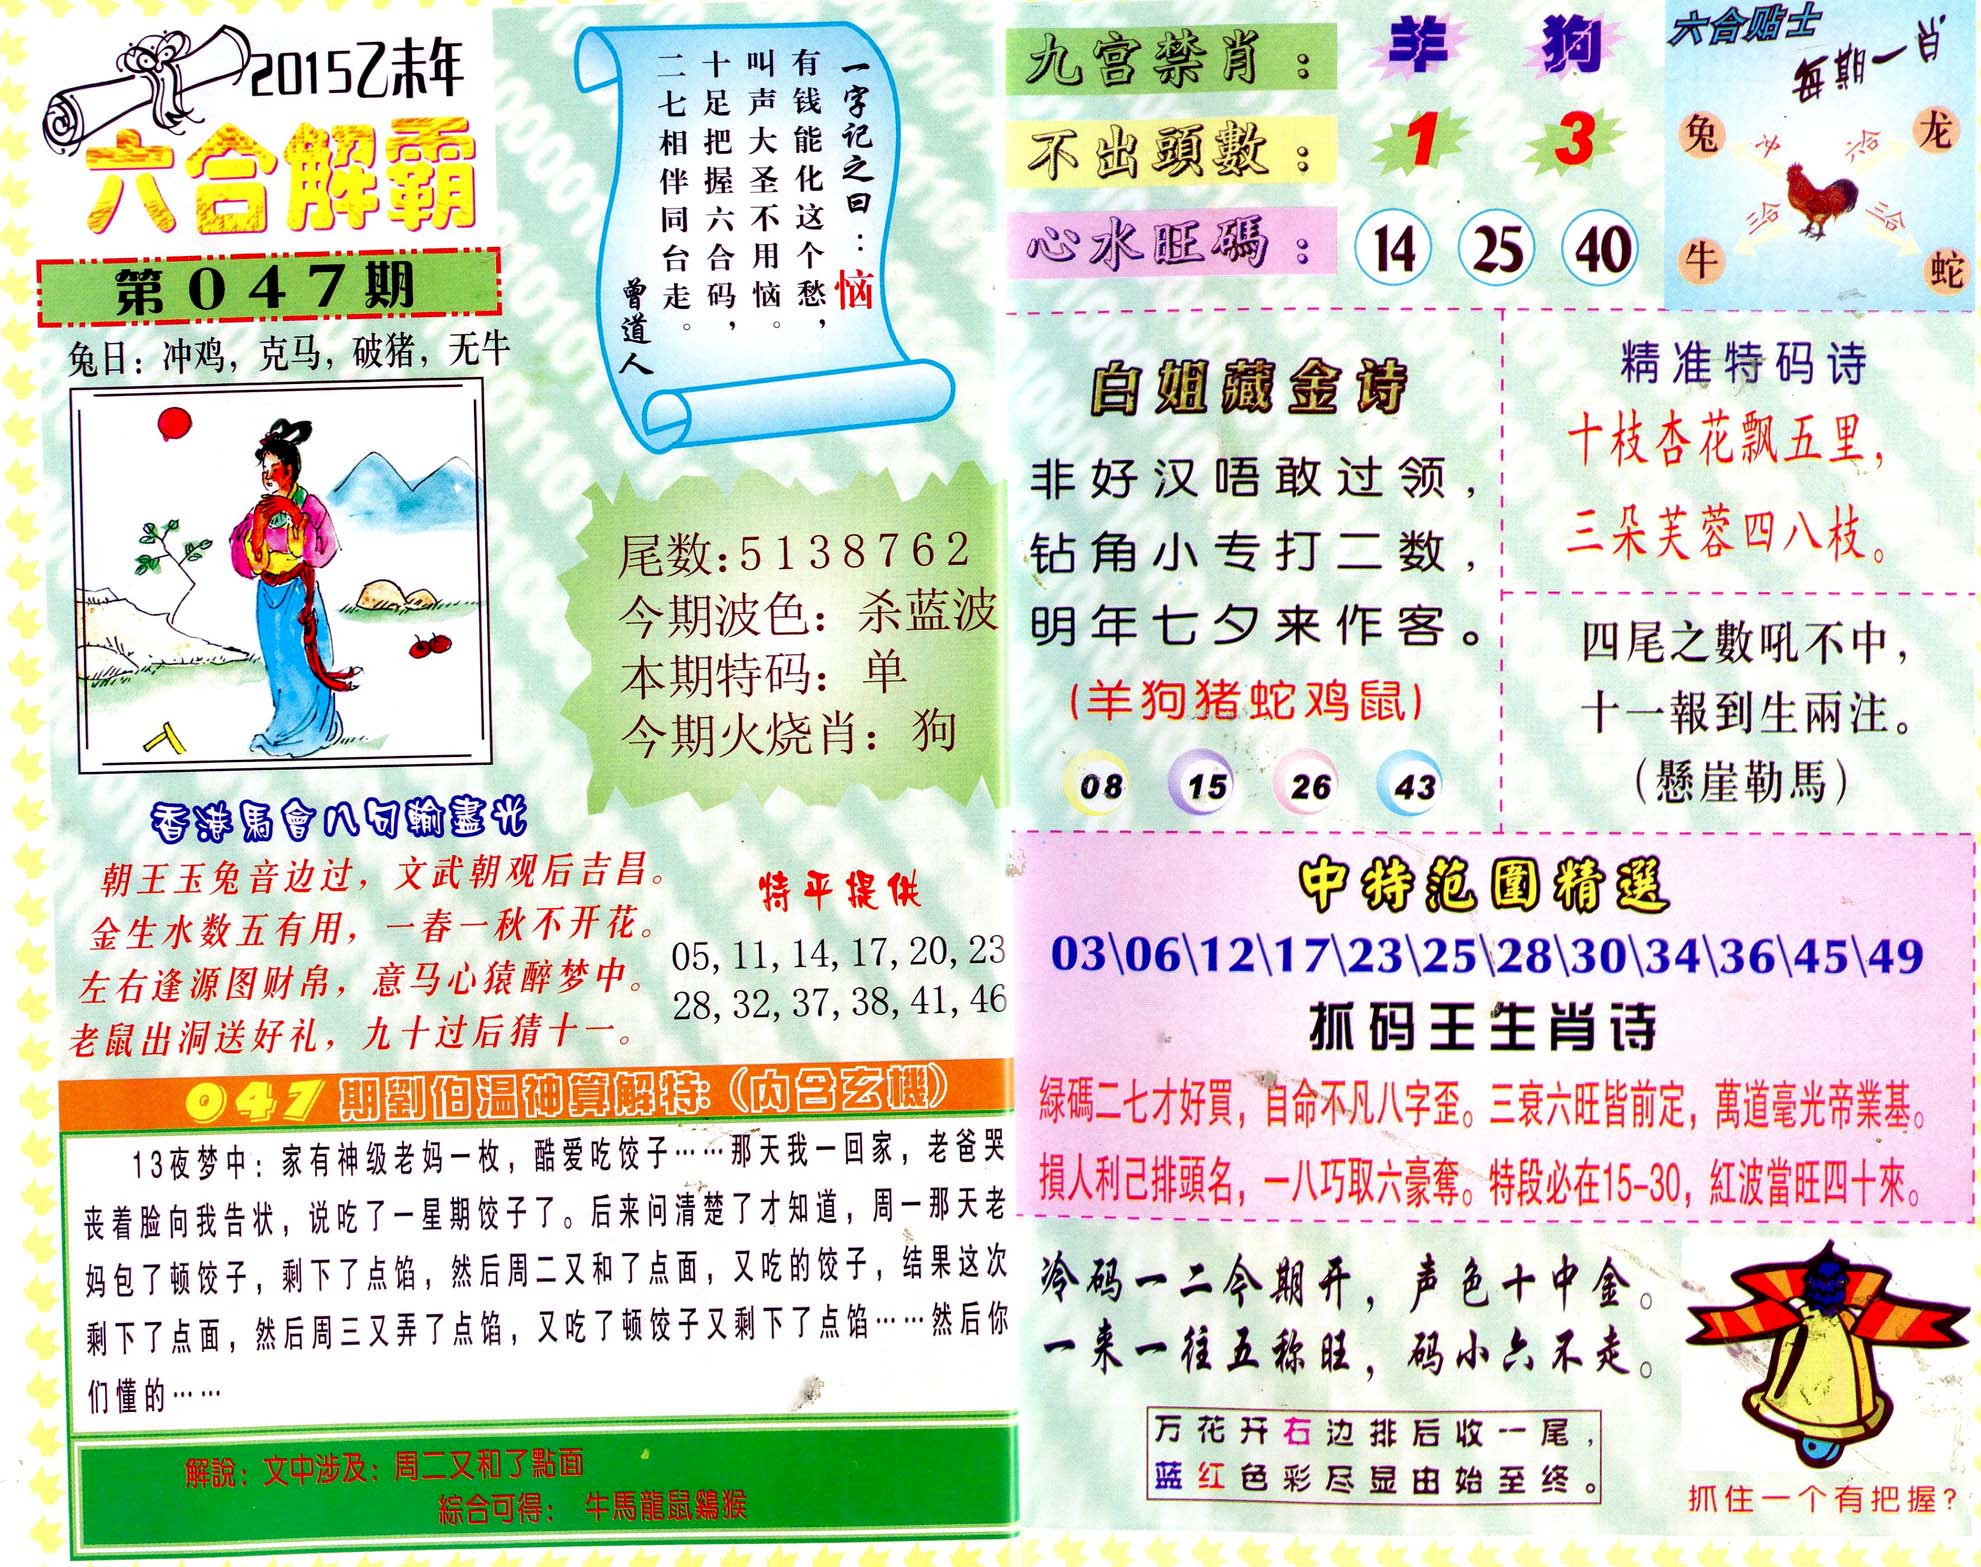 2015乙未年
六合解霸
第047期
兔日：冲鸡，克马，破猪，无牛
一字记之曰：恼
有钱能化这个愁，
叫声大圣不用恼。
十足把握六合码，
二七相伴同台走。
曾道人
尾数:5138762
今期波色：杀蓝波
本期特码：单
今期火烧肖：狗
香港馬會八句輸盡光
朝王玉兔音边过，文武朝观后吉昌。
金生水数五有用，一春一秋不开花。
左右逢源图财帛，意马心猿醉梦中。
老鼠出洞送好礼，九十过后猜十一。
特平提供
05,11,14,17,20,23
28,32,37,38,41,46
047期劉伯温神算解特:（内含玄機）
13夜梦中：家有神级老妈一枚，酷爱吃饺子……那天我一回家，老爸哭
丧着脸向我告状，说吃了一星期饺子了。后来问清楚了才知道，周一那天老
妈包了顿饺子，剩下了点馅，然后周二又和了点面，又吃的饺子，结果这次
剩下了点面，然后周三又弄了点馅，又吃了顿饺子又剩下了点馅……然后你
们懂的……
解說：文中涉及：周二又和了點面
綜合可得： 牛馬龍鼠鷄猴
九宫禁肖： 羊 狗
不出頭數： 1 3
心水旺碼： 14 25 40
六合贴士
每期一肖
兔 冲 六合 龙
牛 三合 三合 蛇
白姐藏金诗
非好汉唔敢过领，
钻角小专打二数，
明年七夕来作客。
(羊狗猪蛇鸡鼠)
08 15 26 43
精准特码诗
十枝杏花飘五里，
三朵芙蓉四八枝。
四尾之數吼不中，
十一報到生兩注。
（懸崖勒馬）
中特范圍精選
03\06\12\17\23\25\28\30\34\36\45\49
抓码王生肖诗
緑碼二七才好買，自命不凡八字歪。三衰六旺皆前定，萬道毫光帝業基。
損人利己排頭名，一八巧取六豪奪。特段必在15-30，紅波當旺四十來。
冷码一二今期开，声色十中金。
一来一往五称旺，码小六不走。
万花开右边排后收一尾，
蓝红色彩尽显由始至终。
抓住一个有把握？